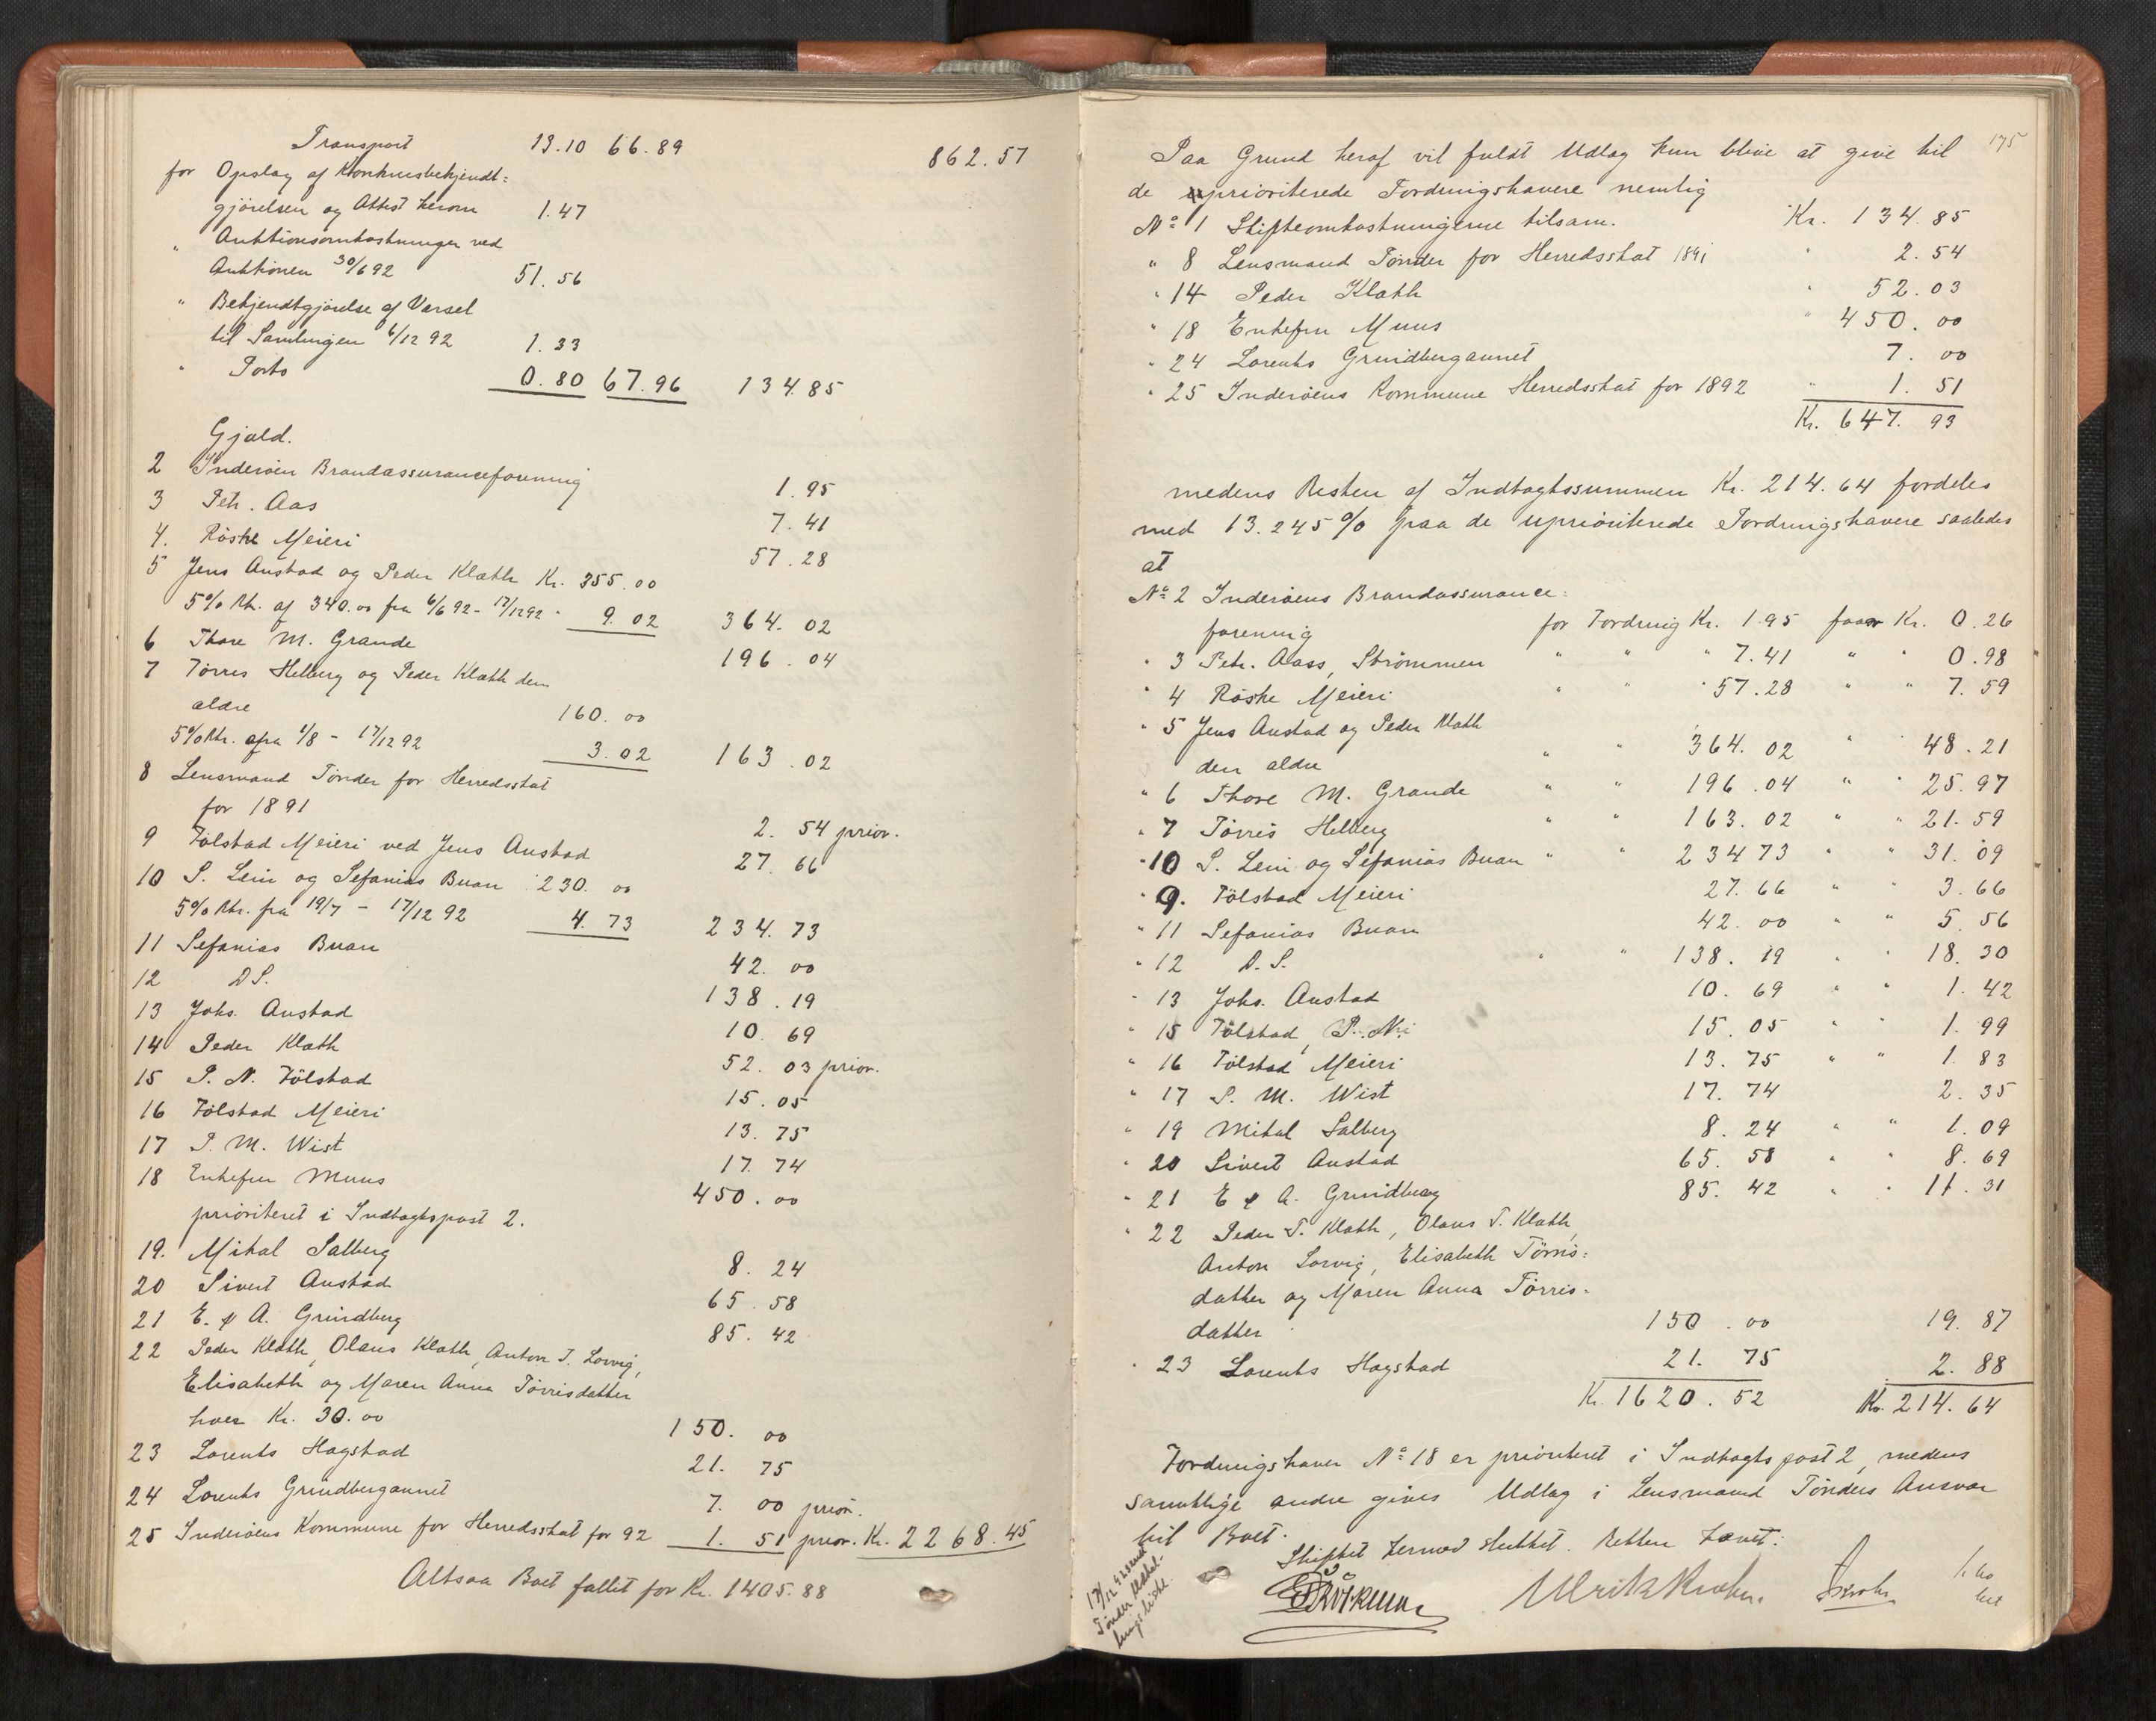 Transport 13.10 66.89 862.57
for Opslag af Konkursbekjendt=
gjörelsen og Attest herom 1.47
" Auktionsomkostninger ved
Auktionen 30/6 92 51.56
" Bekjendtgjörelse af Varsel
til Samlingen 6/12 92 1.33
" Porto 0.80 67.96 134.85
Gjæld.
2 Inderöen Brandassuranceforening 1.95
3 Petr. Aas 7.41
4. Röske Meieri 57.28
5 Jens Austad og Peder Klæth Kr. 355.00
5% Rt. af 340.00 fra 6/6 92 - 17/12 92 " 9.02 364.02
6 Thore M. Grande 196.04
7 Törres Helberg og Peder Klæth den
ældre 160.00
5% Rtr. fra 1/8 - 17/12 92 3.02 163.02
8 Lensmand Tönder for Herredsskat
for 1891 2.54 prior.
9 Tölstad Meieri ved Jens Austad 27.66
10 P. Lein og Sefanias Buan 230.00
5% Rtr. fra 19/7 - 17/12 92 4.73 234.73
11 Sefanias Buan 42.00
12 D.S. 138.19
13 Johs. Austad 10.69
14 Peder Klæth 52.03 prior.
15 P. N. Tölstad 15.05
16 Tölstad Meieri 13.75
17 P. M. Wist 17.74
18 Enkefru Muus 450.00
prioriteret i Indtægtspost 2.
19. Mikal Salberg 8.24
20 Sivert Austad 65.58
21 E. & A. Grundberg 85.42
22 Peder Klæth, Olaus Klæth, Anton T. Lorvig,
Elisabeth og Maren Anna Törrisdatter
hver Kr. 30.00 150.00
23 Lorents Hagstad 21.75
24 Lorents Grundbergaunet 7.00 prior.
25 Inderöens Kommune for Herredsskat for 92 1.51 prior. Kr. 2268.45
Altsaa Boet fallit for Kr. 1405.88
175
Paa Grund heraf vil fuldt Udlæg kun blive at give til
de prioriterede Fordringshavere nemlig
No 1 Skifteomkostningerne tilsam. Kr. 134.85
" 8 Lensmand Tönder for Herredsskat 1891 " 2.54
" 14 Peder Klæth " 52.03
" 18 Enkefru Muus " 450.00
" 24 Lorents Grundbergaunet 7.00
" 25 Inderöens Kommune Herredsskat for 1892 " 1.51
Kr. 647.93
medens Resten af Indtægtssummen Kr. 214.64 fordeles
med 13.245% paa de uprioriterede Fordringshavere saaledes
at
No 2 Inderöens Brandassurance=
forening for Fordring Kr. 1.95 faar Kr. 0.26
" 3 Petr. Aass, Strömmen " " " 7.41 " " 0.98
" 4 Röske Meieri " " " 57.28 " " 7.59
" 5 Jens Austad og Peder Klæth
den ældre " " 364.02 " " 48.21
" 6 Thore M. Grande " " 196.04 " " 25.97
" 7 Törris Helberg " " 163.02 " " 21.59
" 10 P. Lein og Sefanias Buan " " 234 73 " " 31.09
" 9. Tölstad Meieri 27.66 " " 3.66
" 11 Sefanias Buan 42.00 " " 5.56
" 12 D.S. " " 138.19 " " 18.30
" 13 Johs. Austad 10.69 " " 1.42
" 15 Tölstad, P. N. 15.05 " " 1.99
" 16 Tölstad Meieri 13.75 " " 1.83
" 17 P. M. Wist 17.74 2.35
" 19 Mikal Salberg 8.24 " " 1.09
" 20 Sivert Austad 65.58 " " 8.69
" 21 E & A. Grundberg 85.42 " " 11.31
" 22 Peder T. Klæth, Olaus T. Klæth,
Anton Lorvig, Elisabeth Törris=
datter og Maren Anna Törris=
datter 150.00 19.87
" 23 Lorents Hagstad 21.75 2.88
Kr. 1620.52 Kr. 214.64
Fordringshaver No 18 er prioriteret i Indtægtspost 2, medens
samtlige andre gives Udlæg i Lensmand Tönders Ansvar
til Boet.
Skiftet hermed sluttet. Retten hævet.
17/12 92 sendt
Tönder
Ulrik Krohn.